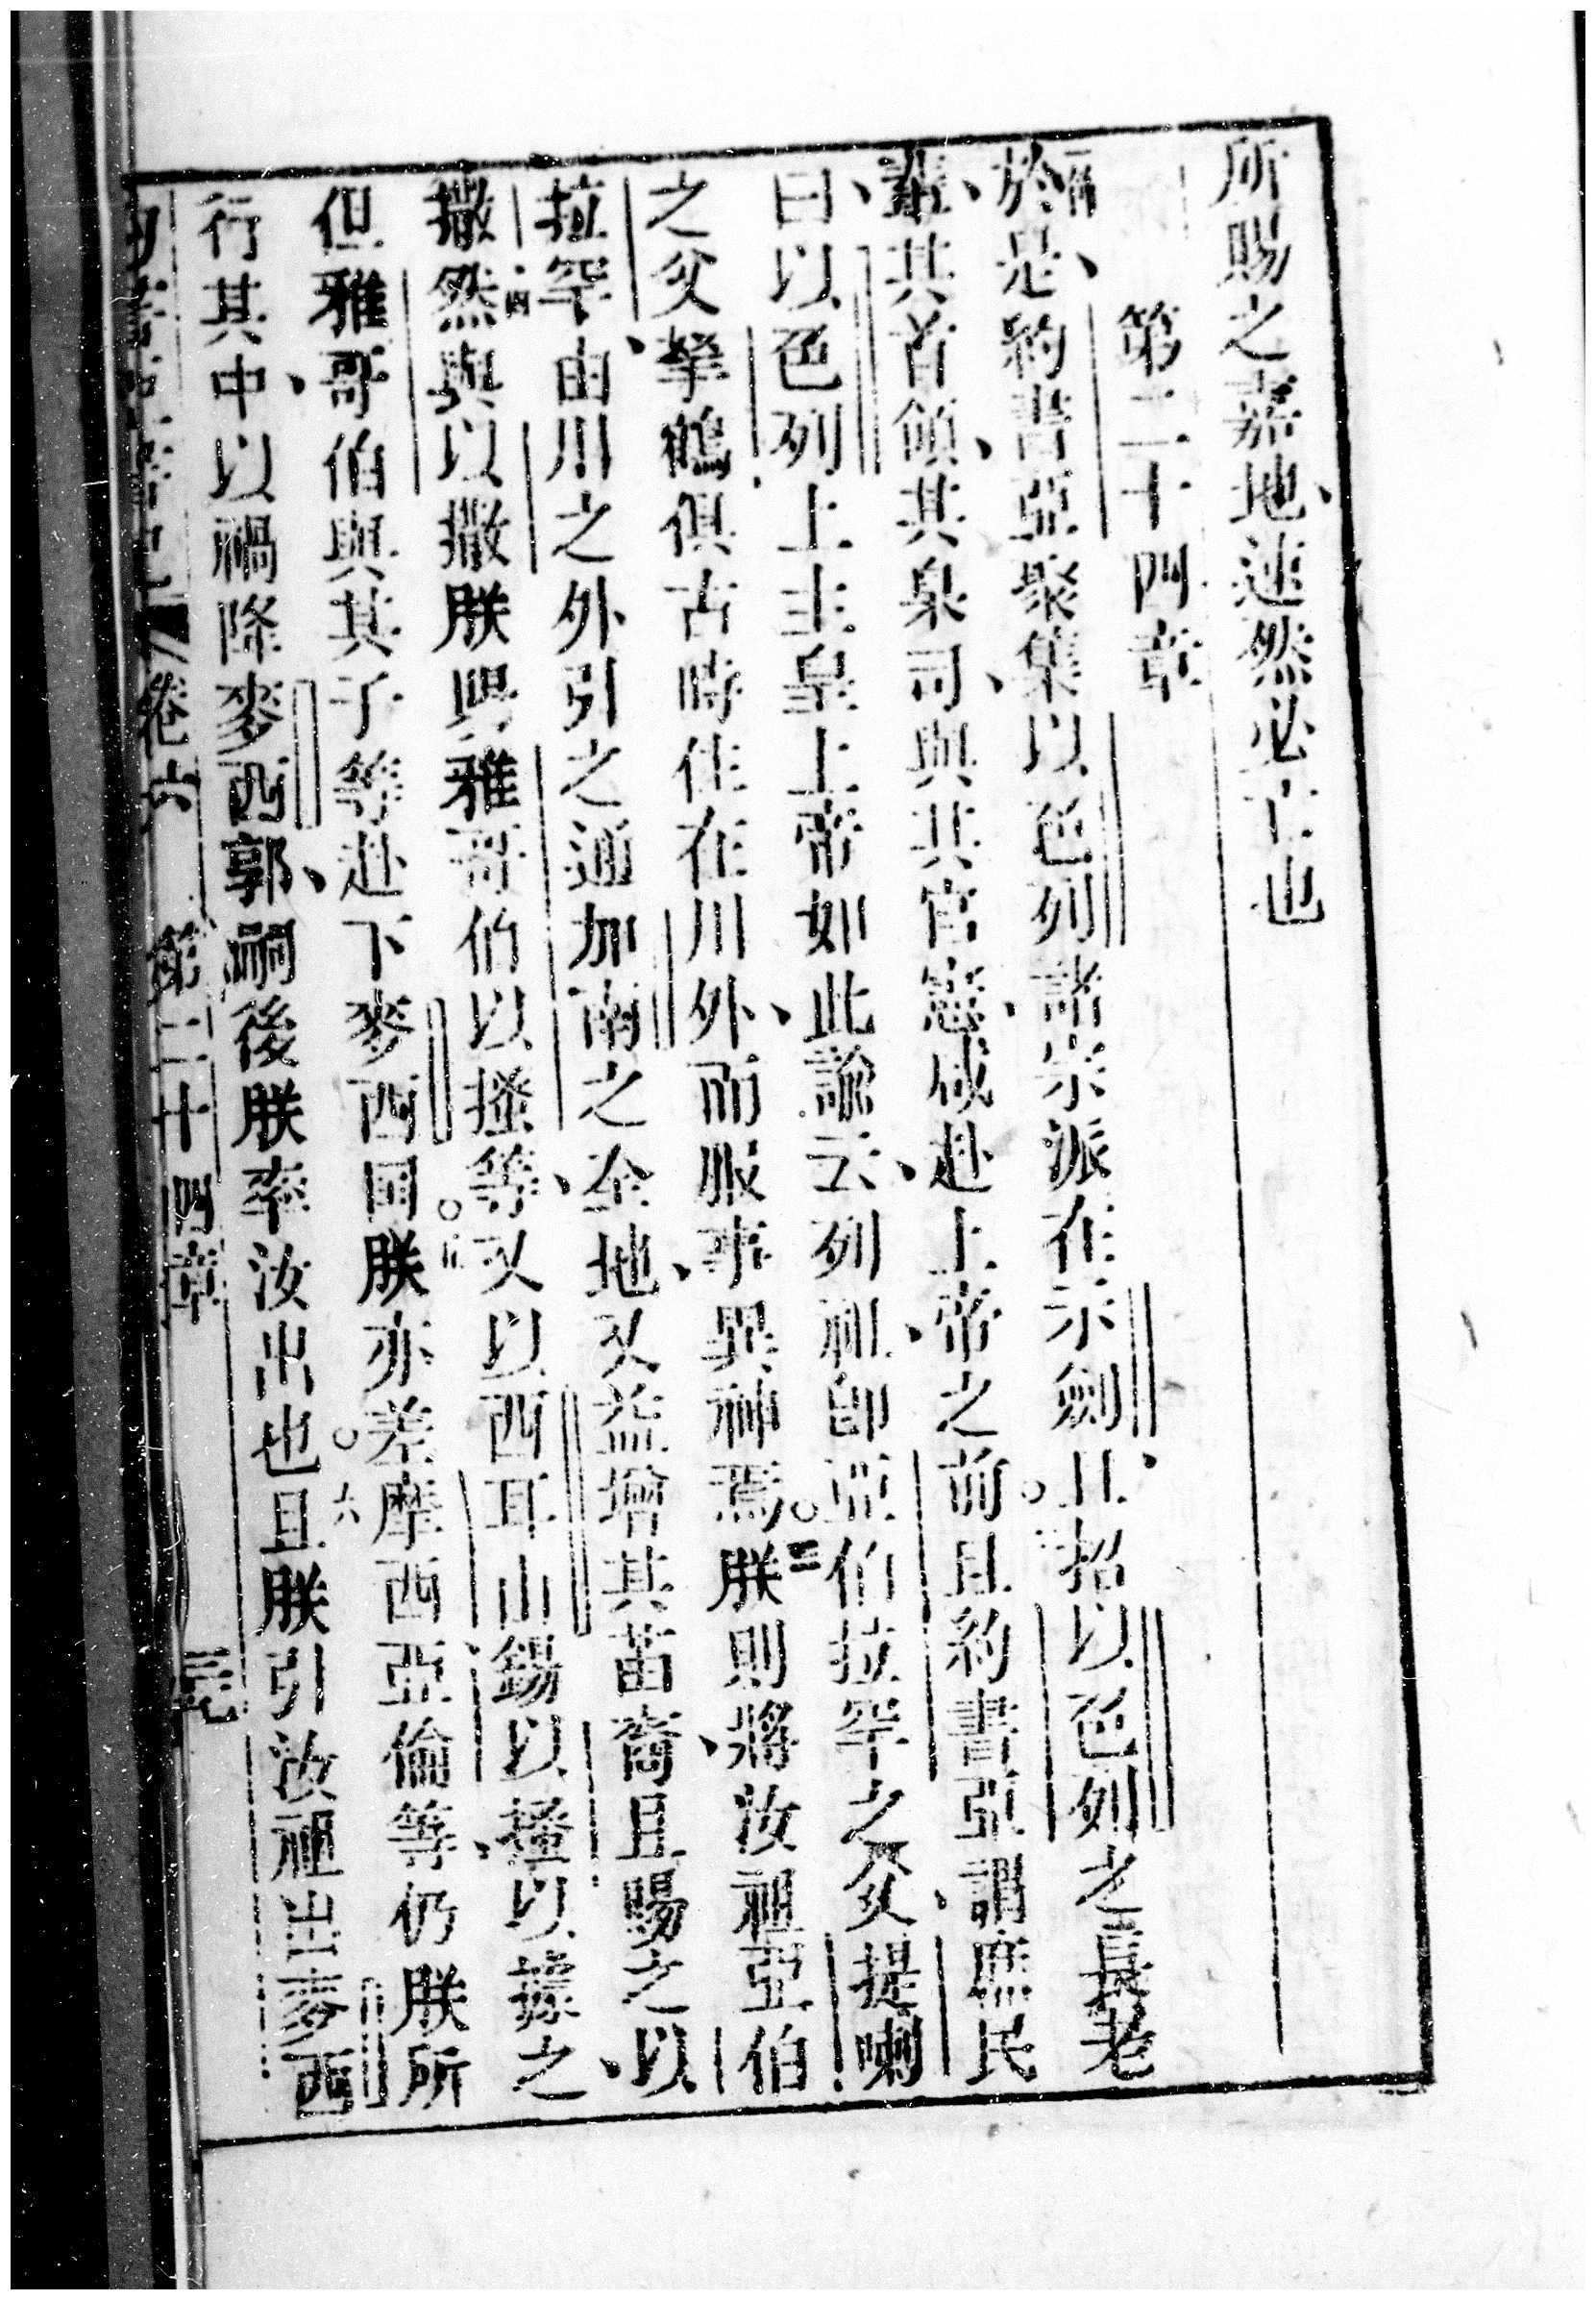 所賜之嘉地、速然必亡也
第二十四章
於是、約書亞聚集以色列諸宗派在示劍、且招以色列之長老
輩、其首領、其臬司、與其官憲、咸赴上帝之前。二且約書亞謂庶民
曰、以色列上主皇上帝如此諭云、列祖、即亞伯拉罕之父、提喇
之父、拏鶴、俱古時住在川外、而服事異神焉。三朕則將汝祖亞伯
拉罕、由川之外引之通加南之全地、又益增其苗裔、且賜之以
撒。四然與以撒朕賜雅哥伯以搔等、又以西耳山錫以搔、以據之、
但雅哥伯與其子等赴下麥西國。五朕亦差摩西亞倫等、仍朕所
行其中、以禍降麥西郭、嗣後朕率汝出也。六且朕引汝祖出麥西
卷六 第二十四章